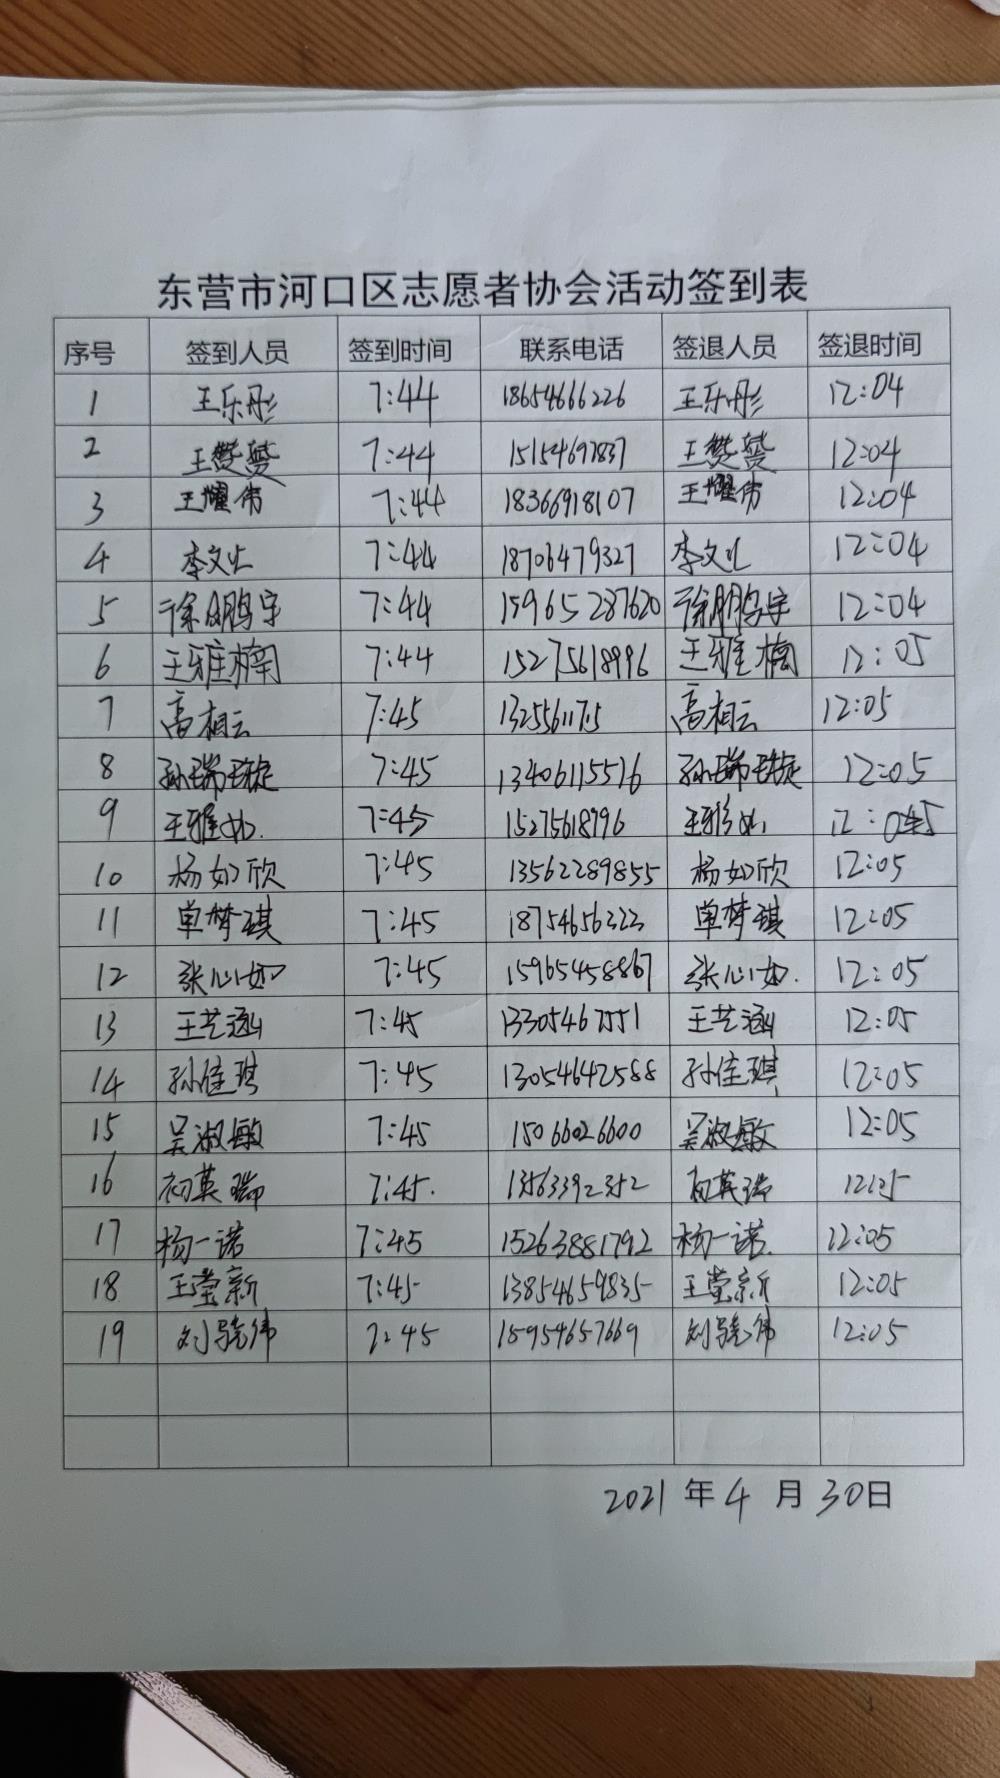 东营市河口区志愿者协会活动签到表
序号 签到人员 签到时间 联系电话 签退人员 签退时间
1 王乐彤 7:44 18654666226 王乐彤 12:04
2 王赞赞 7:44 15154692837 王赞赞 12:04
3 王耀伟 7:44 18366918107 王耀伟 12:04
4 李文 7:44 18706479327 李文 12:04
5 徐鹏宇 7:44 15965287620 徐鹏宇 12:04
6 王雅楠 7:44 15275618996 王雅楠 12:05
7 高相云 7:45 1325561175 高相云 12:05
8 孙瑞璇 7:45 13406115576 孙瑞璇 12:05
9 王雅如 7:45 15275618796 王雅如 12:05
10 杨如欣 7:45 13562289855 杨如欣 12:05
11 单梦琪 7:45 18754656222 单梦琪 12:05
12 张心如 7:45 15965458867 张心如 12:05
13 王艺涵 7:45 13305467551 王艺涵 12:05
14 孙佳琪 7:45 13054642588 孙佳琪 12:05
15 吴淑敏 7:45 15066026600 吴淑敏 12:05
16 初英瑞 7:45 13563392352 初英瑞
17 杨一诺 7:45 15263881792 杨一诺 12:05
18 王莹新 7:45 13854659835 王莹新 12:05
19 刘骁伟 7:45 15954657669 刘骁伟 12:05
2021年4月30日